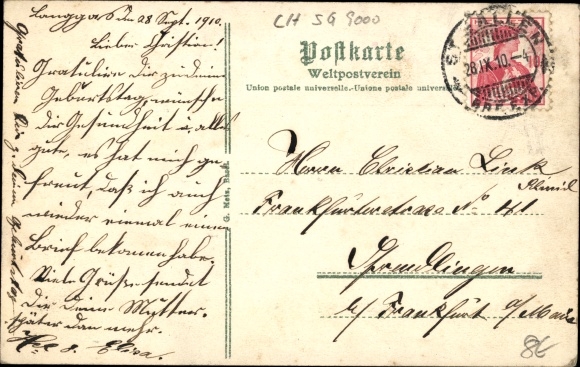 Langgass den 28 Sept. 1910.
Lieber Christian!
Gratuliere Dir zu deinem
Geburtstag, wünsche
dir Gesundheit u. alles
gute, es hat mich ge
freut, daß ich auch
wieder einmal einen
Brief bekomen habe.
Viele Grüße sendet
Dir deine Mutter.
später dan mehr.
Elisa.
Gratuliere Dir z. deinem Geburtstag
CH SG 9000
Postkarte
Weltpostverein
Union postale universelle.-Unione postale universale
ST. GALLEN
28.IX.10.-4
G. Metz, Basel
Herrn Christian Link
Frankfurterstrasse No 41
Sprendlingen
b/ Frankfurt a/Main
8€